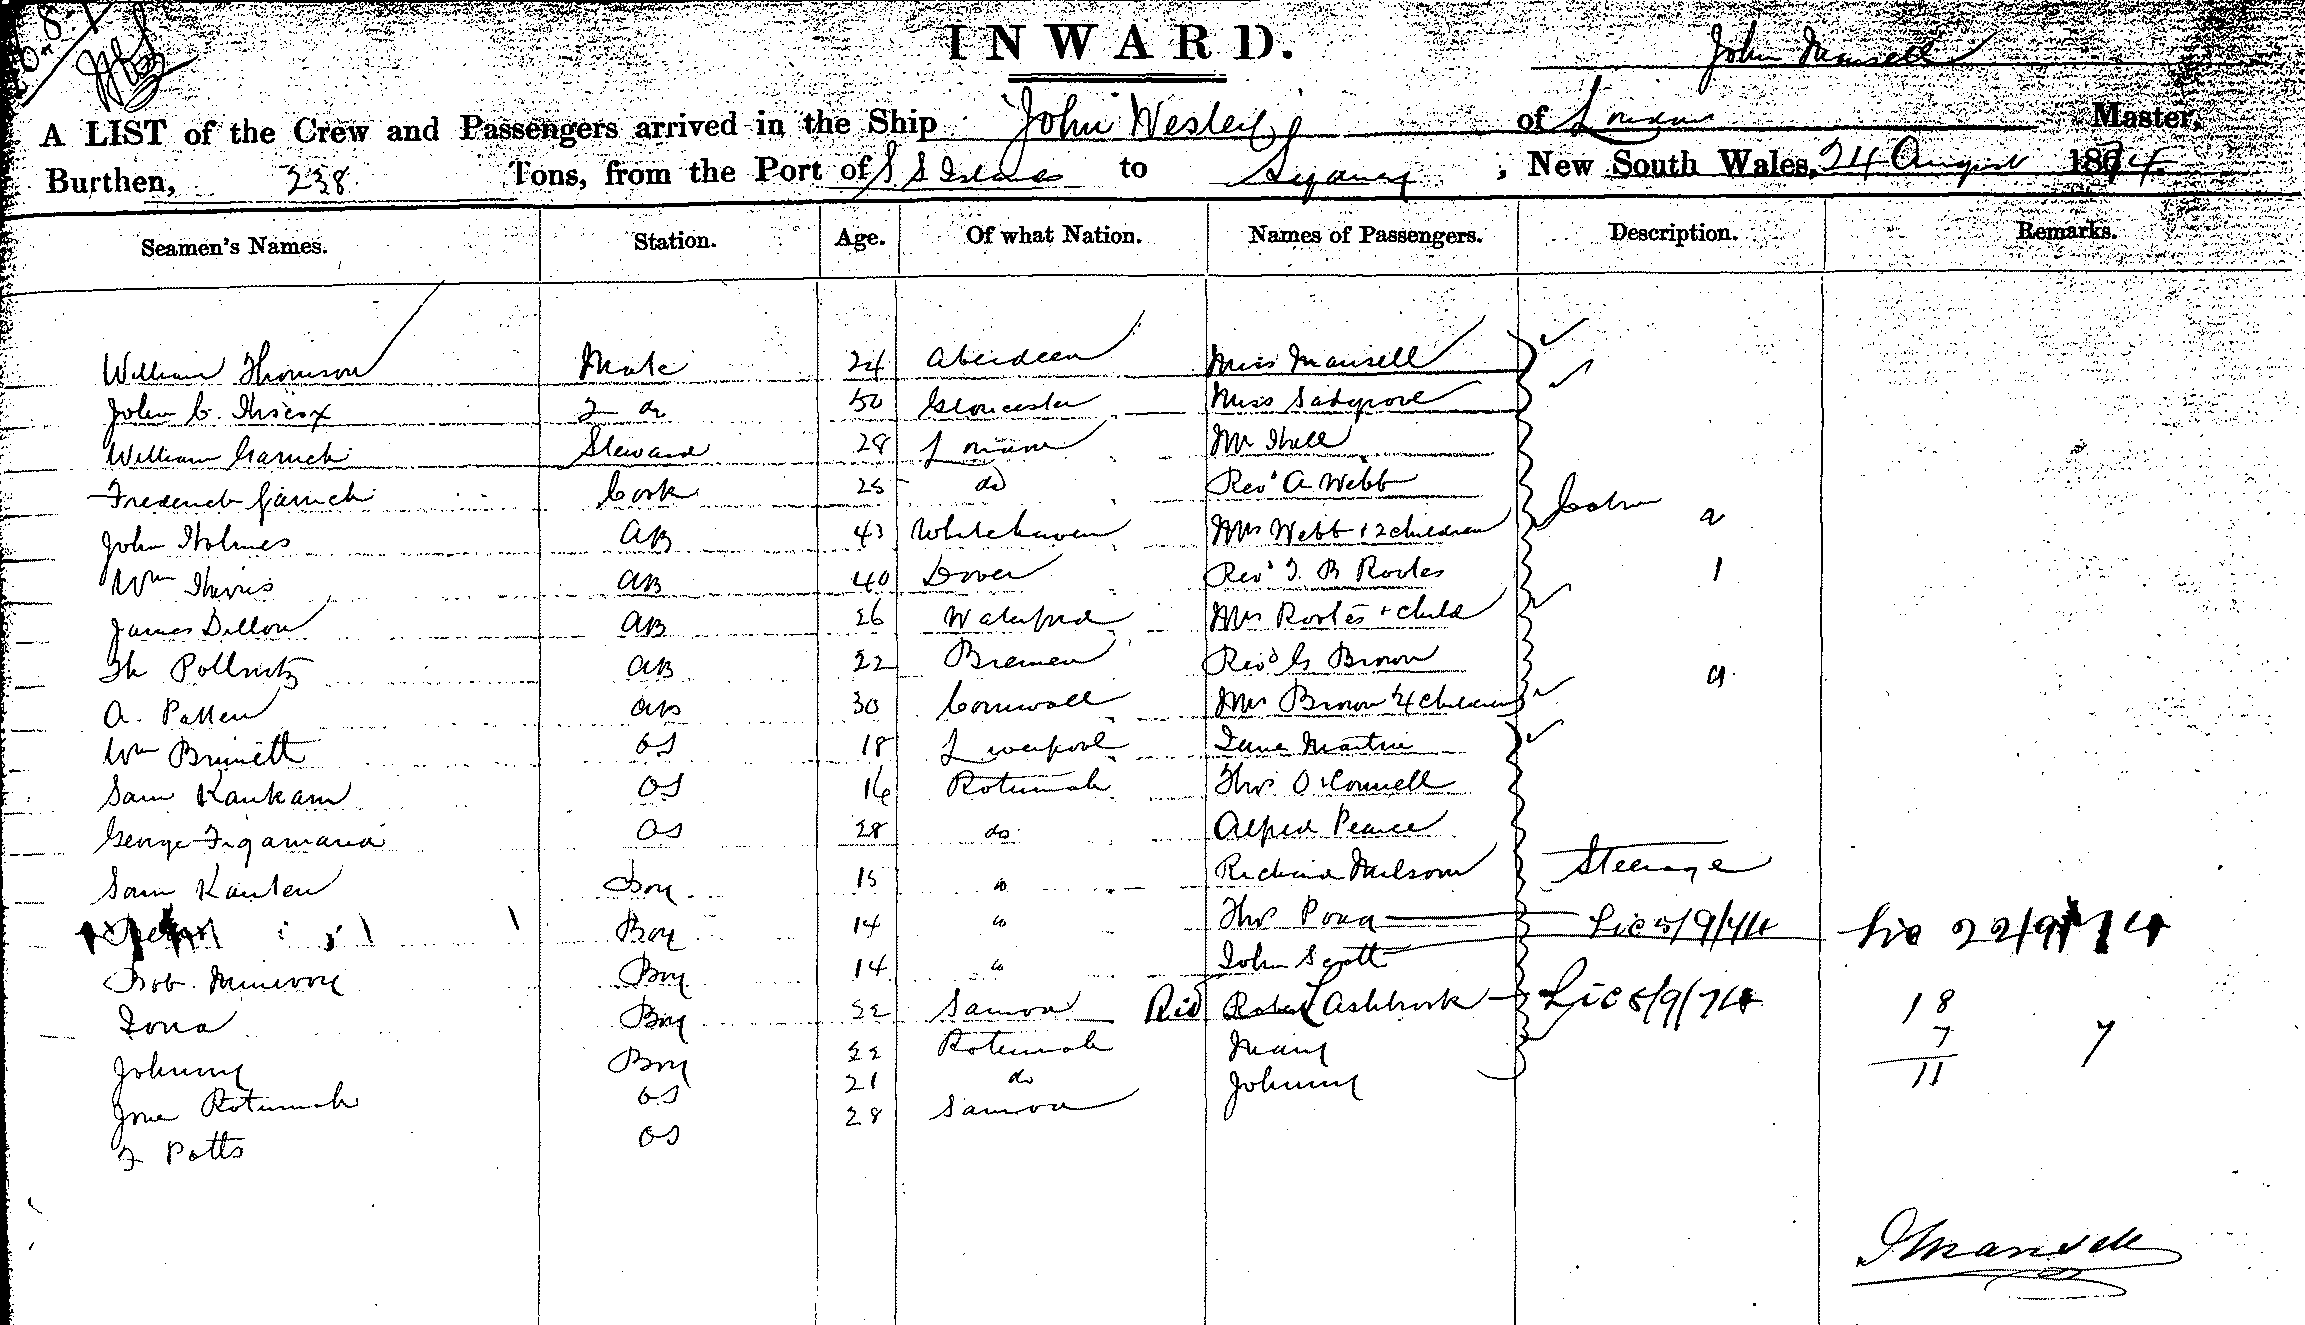 INWARD.
John Mansell
A LIST of the Crew and Passengers arrived in the Ship "John Wesley" of London Master,
Burthen, 238 Tons, from the Port of S S Islands to Sydney, New South Wales, 24 August 1874.
Seamen's Names. Station. Age. Of what Nation. Names of Passengers. Description. Remarks.
William Thomson Mate 24 Aberdeen Miss Mansell
John C. Hiscox 2 do 50 Gloucester Miss Sadgrove
William Garrick Steward 28 London Mr Hill
Frederick Garrick Cook 25 do Revd A Webb
John Holmes AB 43 Whitehaven Mrs Webb + 2 children Cabin 2
Wm Harris AB 40 Dover Revd J. B Rootes 1
James Dillon AB 26 Waterford Mrs Rootes + child
Pollnitz AB 22 Bremen Revd G Brown 9
A. Patten AB 30 Cornwall Mrs Brown 4 Children
Wm Brinett OS 18 Liverpool Jane Martin
Sam Kaukam OS 16 Rotumah Thos O'Connell
George OS 28 do Alfred Pearce
Sam Kanten Boy 15 " Richard Milsom Steerage
Boy 14 " Thos Lic 5/9/74 Lic 22/9/74
Bob Boy 14 " John Scott
Iona Boy 22 Samoa Ric Ashbrook Lic 5/9/74 18
Johnny Boy 22 Rotumah Mary 7 7
Joe Rotumah OS 21 do Johnny 11
F Potts OS 28 Samoa
J Mansell